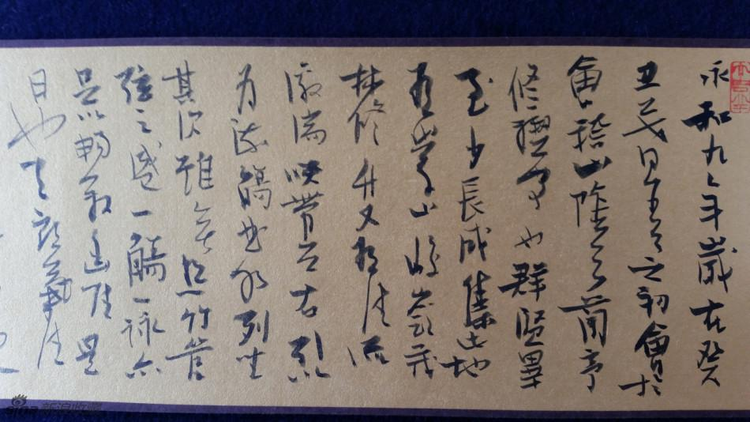 永和九年歲在癸
丑暮春之初會於
會稽山陰之蘭亭
修禊事也群賢畢
至少長咸集此地
有崇山峻嶺茂
林修竹又有清流
激湍映帶左右引以
為流觴曲水列坐
其次雖無絲竹管
弦之盛一觴一詠亦
足以暢敘幽情是
日也天朗氣清
sina 新浪收藏